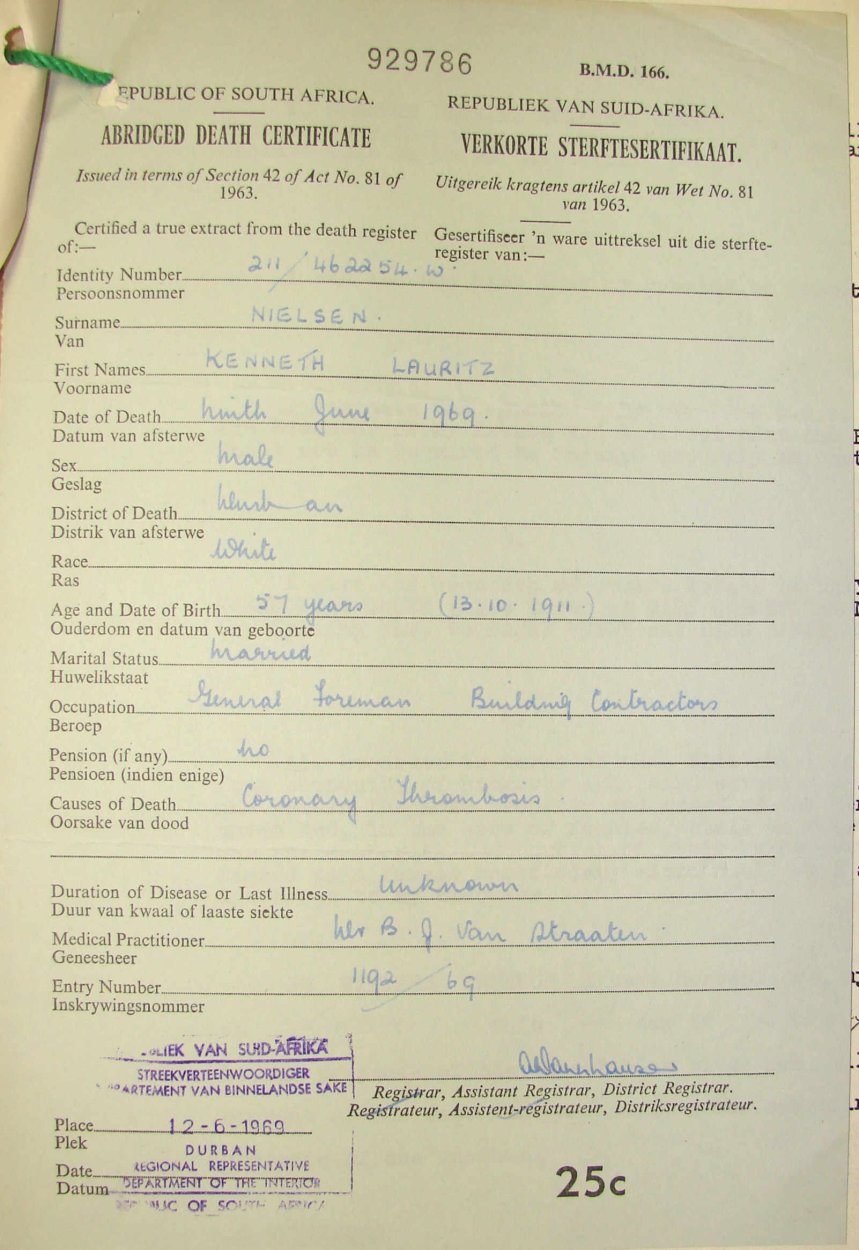 929786
B.M.D. 166.
EPUBLIC OF SOUTH AFRICA.
REPUBLIEK VAN SUID-AFRIKA.
ABRIDGED DEATH CERTIFICATE
VERKORTE STERFTESERTIFIKAAT.
Issued in terms of Section 42 of Act No. 81 of
1963.
Uitgereik kragtens artikel 42 van Wet No. 81
van 1963.
Certified a true extract from the death register
of:—
Gesertifiseer 'n ware uittreksel uit die sterfte-
register van:—
Identity Number 211/462254.W.
Persoonsnommer
Surname NIELSEN.
Van
First Names KENNETH LAURITZ
Voorname
Date of Death Ninth June 1969.
Datum van afsterwe
Sex Male
Geslag
District of Death Durban
Distrik van afsterwe
Race White
Ras
Age and Date of Birth 57 years (13.10.1911.)
Ouderdom en datum van geboorte
Marital Status Married
Huwelikstaat
Occupation General Foreman Building Contractors
Beroep
Pension (if any) No
Pensioen (indien enige)
Causes of Death Coronary Thrombosis.
Oorsake van dood
Duration of Disease or Last Illness Unknown
Duur van kwaal of laaste siekte
Medical Practitioner Dr B. J. Van Straaten.
Geneesheer
Entry Number 1192/69
Inskrywingsnommer
BLIEK VAN SUID-AFRIKA
STREEKVERTEENWOORDIGER
PARTEMENT VAN BINNELANDSE SAKE
Registrar, Assistant Registrar, District Registrar.
Registrateur, Assistent-registrateur, Distriksregistrateur.
Place 12-6-1969
Plek
DURBAN
Date REGIONAL REPRESENTATIVE
Datum DEPARTMENT OF THE INTERIOR
REPUBLIC OF SOUTH AFRICA
25c